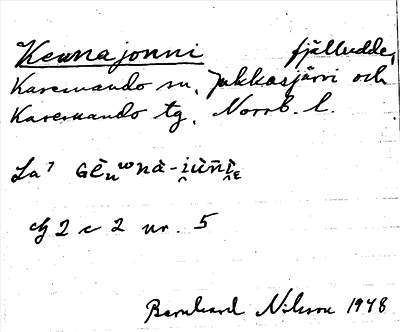 Keunajonni fjälludde,
Karesuando sn, Jukkasjärvi och
Karesuando tg, Norrb. l.
La⁷
2 c 2 nr. 5
Bernhard Nilsson 1948